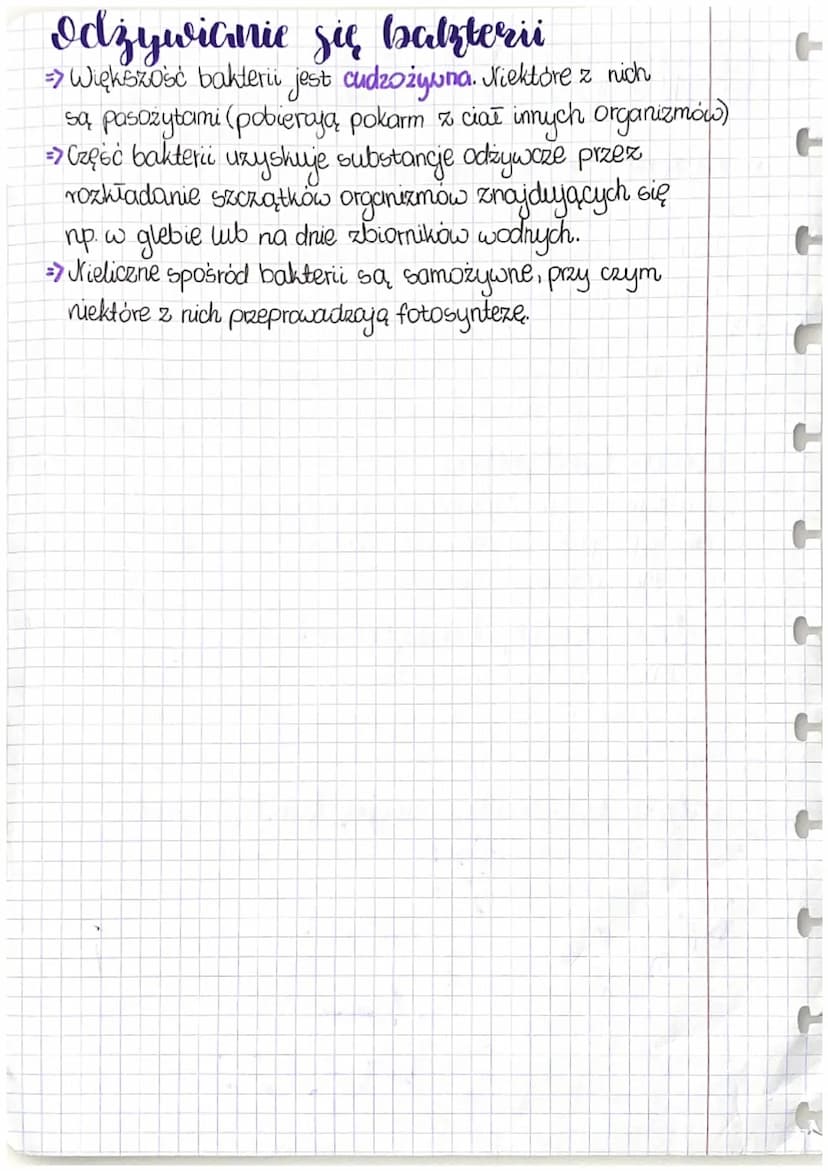 Odżywianie się bakterii
=> Większość bakterii jest cudzożywna. Niektóre z nich
są pasożytami (pobierają pokarm z ciał innych organizmów)
=> Część bakterii uzyskuje substancje odżywcze przez
rozkładanie szczątków organizmów znajdujących się
np. w glebie lub na dnie zbiorników wodnych.
=> Nieliczne spośród bakterii są samożywne, przy czym
niektóre z nich przeprowadzają fotosyntezę.